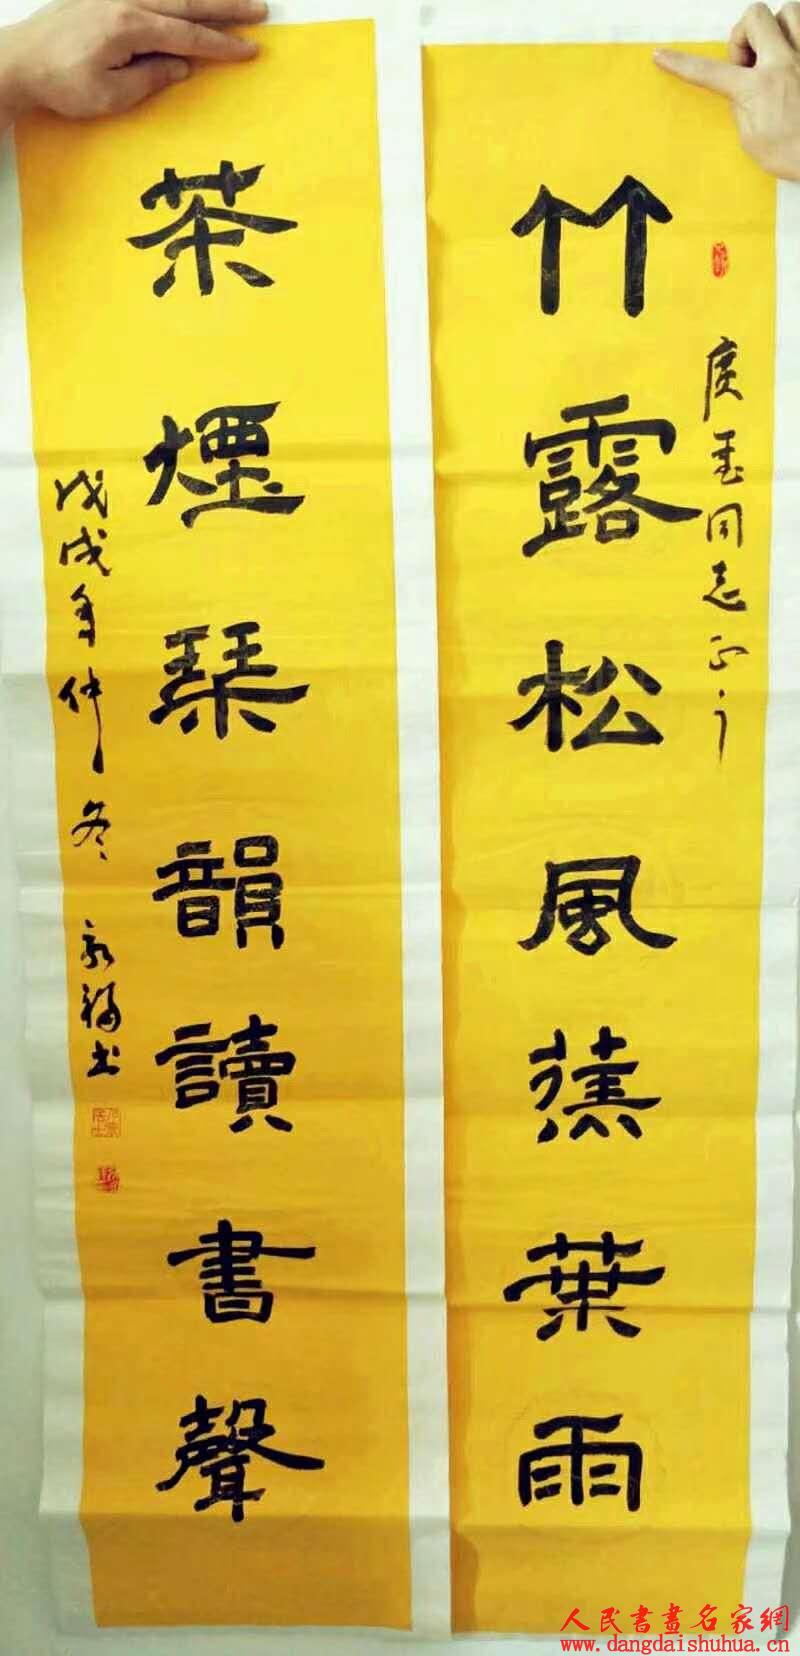 竹露松風蕉葉雨
同志正之
茶煙琴韻讀書聲
戊戌年仲冬 永福书
人民書畫名家網
www.dangdaishuhua.cn